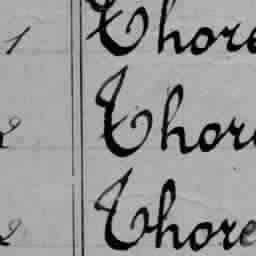 1 Thore
2 Thore
2 Thore